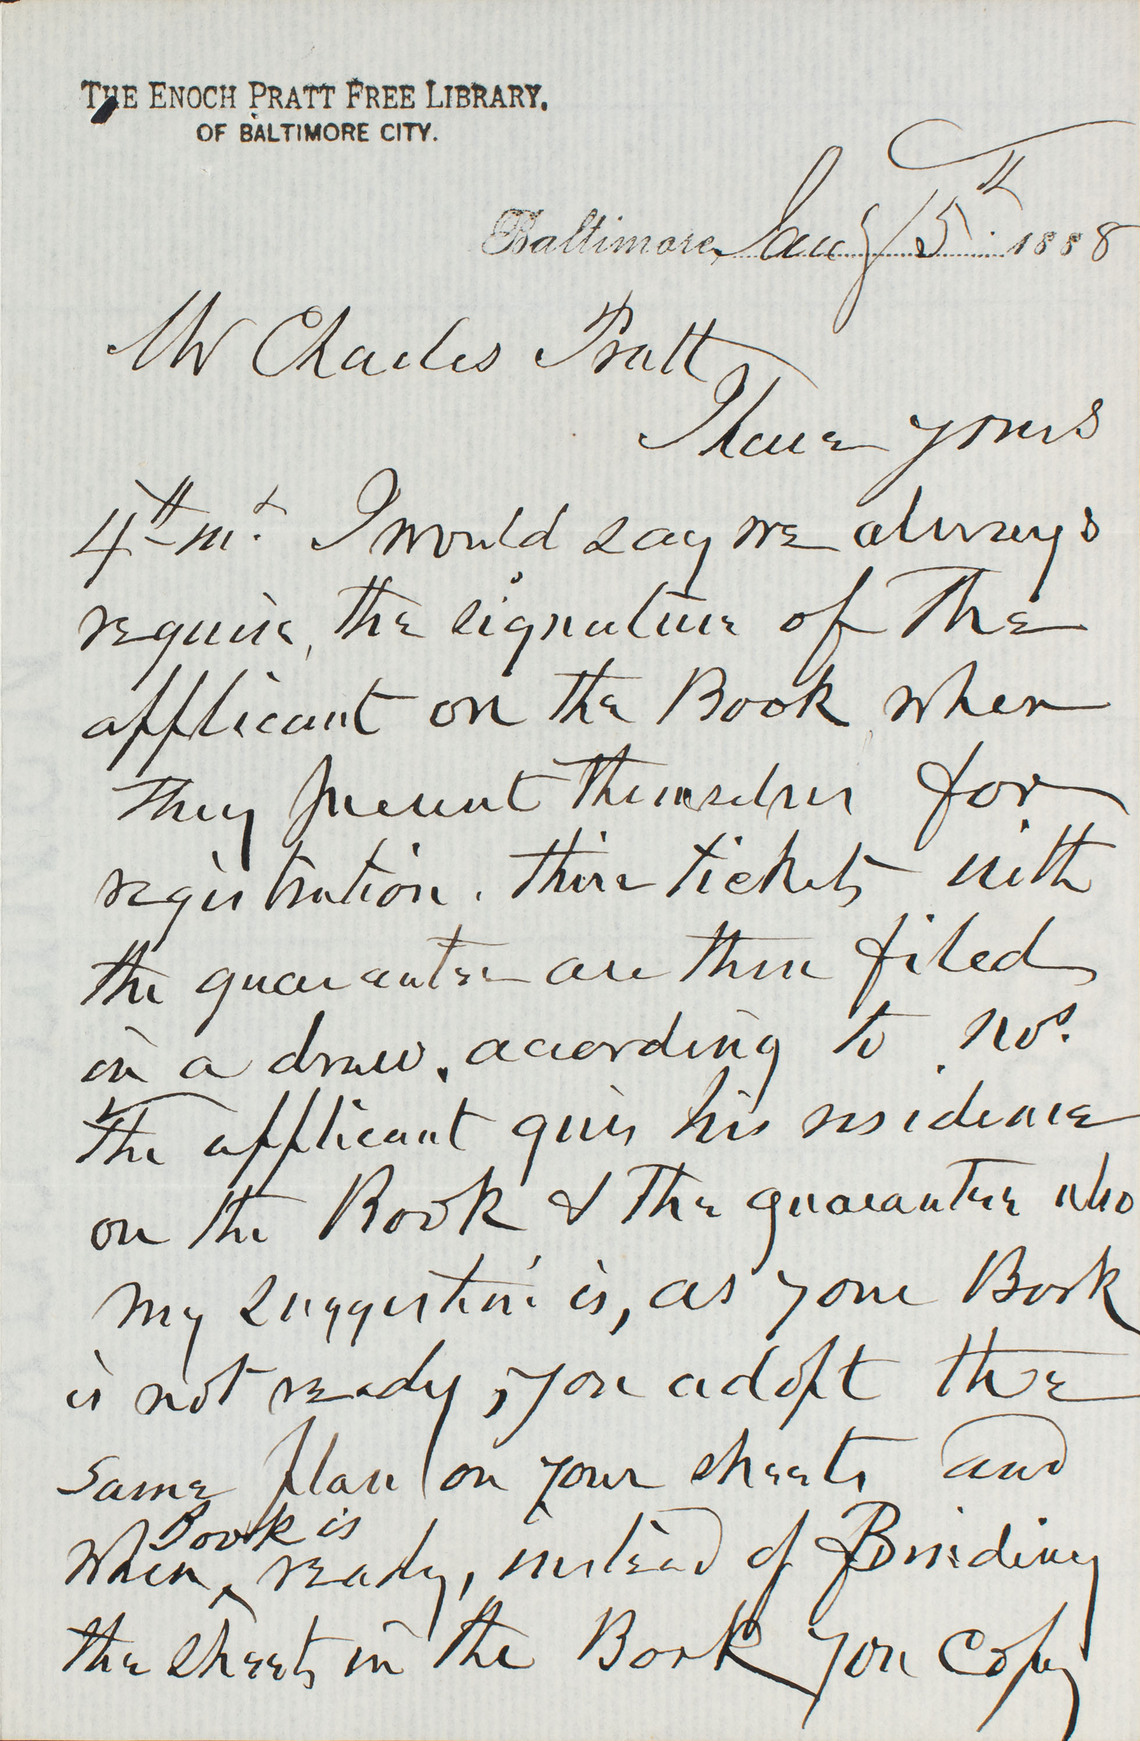 THE ENOCH PRATT FREE LIBRARY.
OF BALTIMORE CITY.
Baltimore, Jany 5th 1888
Mr Charles Pratt
I have yours
4th int. I would say we always
require, the signature of the
applicant on the Book when
they present themselves for
registration. their tickets with
the guarantee are then filed
in a draw. according to nos.
The applicant gives his residence
on the Book & the guarantee also
my suggestion is, as your Book
is not ready, you adopt the
same plan on your sheets and
Book is
when ^ ready, instead of Binding
the sheets in the Book you copy